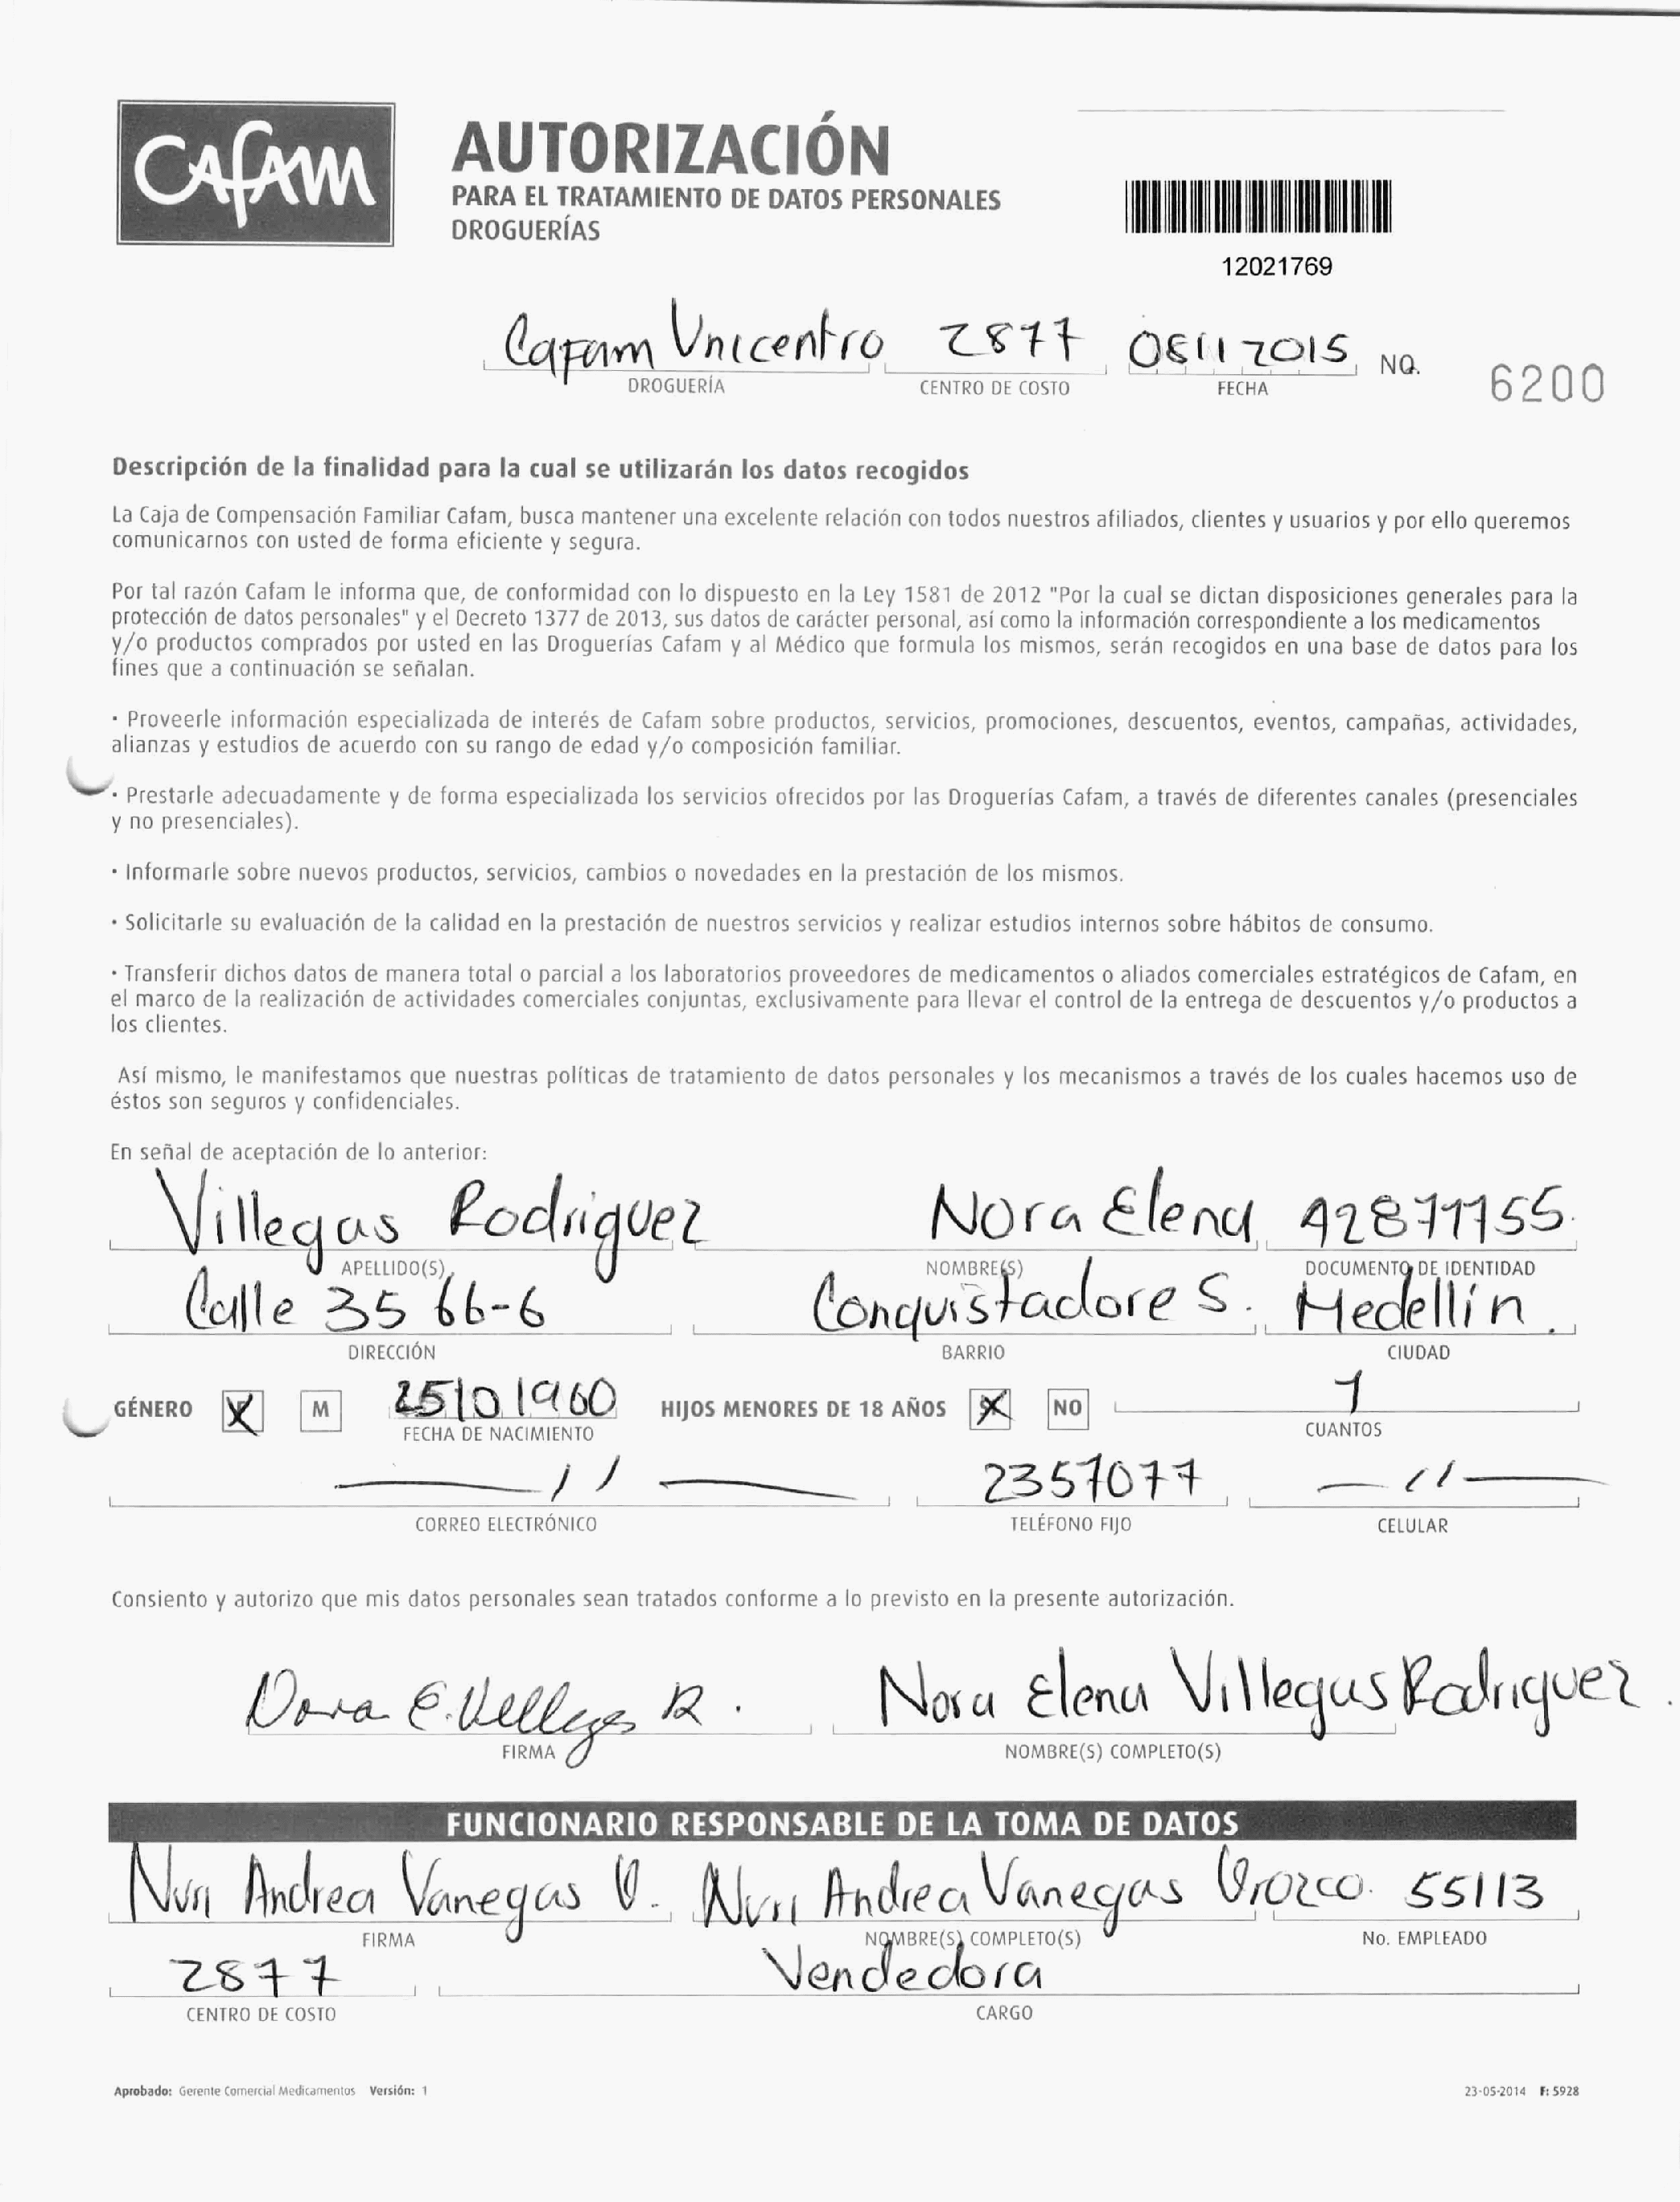 CAFAM
AUTORIZACIÓN
PARA EL TRATAMIENTO DE DATOS PERSONALES
DROGUERÍAS
12021769
Cafam Unicentro 2877 05112015 NO. 6200
DROGUERÍA CENTRO DE COSTO FECHA
Descripción de la finalidad para la cual se utilizarán los datos recogidos
La Caja de Compensación Familiar Cafam, busca mantener una excelente relación con todos nuestros afiliados, clientes y usuarios y por ello queremos
comunicarnos con usted de forma eficiente y segura.
Por tal razón Cafam le informa que, de conformidad con lo dispuesto en la Ley 1581 de 2012 "Por la cual se dictan disposiciones generales para la
protección de datos personales" y el Decreto 1377 de 2013, sus datos de carácter personal, así como la información correspondiente a los medicamentos
y/o productos comprados por usted en las Droguerías Cafam y al Médico que formula los mismos, serán recogidos en una base de datos para los
fines que a continuación se señalan.
· Proveerle información especializada de interés de Cafam sobre productos, servicios, promociones, descuentos, eventos, campañas, actividades,
alianzas y estudios de acuerdo con su rango de edad y/o composición familiar.
· Prestarle adecuadamente y de forma especializada los servicios ofrecidos por las Droguerías Cafam, a través de diferentes canales (presenciales
y no presenciales).
· Informarle sobre nuevos productos, servicios, cambios o novedades en la prestación de los mismos.
· Solicitarle su evaluación de la calidad en la prestación de nuestros servicios y realizar estudios internos sobre hábitos de consumo.
· Transferir dichos datos de manera total o parcial a los laboratorios proveedores de medicamentos o aliados comerciales estratégicos de Cafam, en
el marco de la realización de actividades comerciales conjuntas, exclusivamente para llevar el control de la entrega de descuentos y/o productos a
los clientes.
Así mismo, le manifestamos que nuestras políticas de tratamiento de datos personales y los mecanismos a través de los cuales hacemos uso de
éstos son seguros y confidenciales.
En señal de aceptación de lo anterior:
Villegas Rodriguez Nora Elena 42871155.
APELLIDO(S) NOMBRE(S) DOCUMENTO DE IDENTIDAD
Calle 35 66-6 Conquistadores. Medellín.
DIRECCIÓN BARRIO CIUDAD
GÉNERO X M 25101960 HIJOS MENORES DE 18 AÑOS X NO 1
FECHA DE NACIMIENTO CUANTOS
— // — 2357077 — // —
CORREO ELECTRÓNICO TELÉFONO FIJO CELULAR
Consiento y autorizo que mis datos personales sean tratados conforme a lo previsto en la presente autorización.
Nora E. Villegas R. Nora Elena Villegas Rodriguez.
FIRMA NOMBRE(S) COMPLETO(S)
FUNCIONARIO RESPONSABLE DE LA TOMA DE DATOS
Nuri Andrea Vanegas O. Nuri Andrea Vanegas Orozco. 55113
FIRMA NOMBRE(S) COMPLETO(S) No. EMPLEADO
2877 Vendedora
CENTRO DE COSTO CARGO
Aprobado: Gerente Comercial Medicamentos Versión: 1 23-05-2014 F: 5928